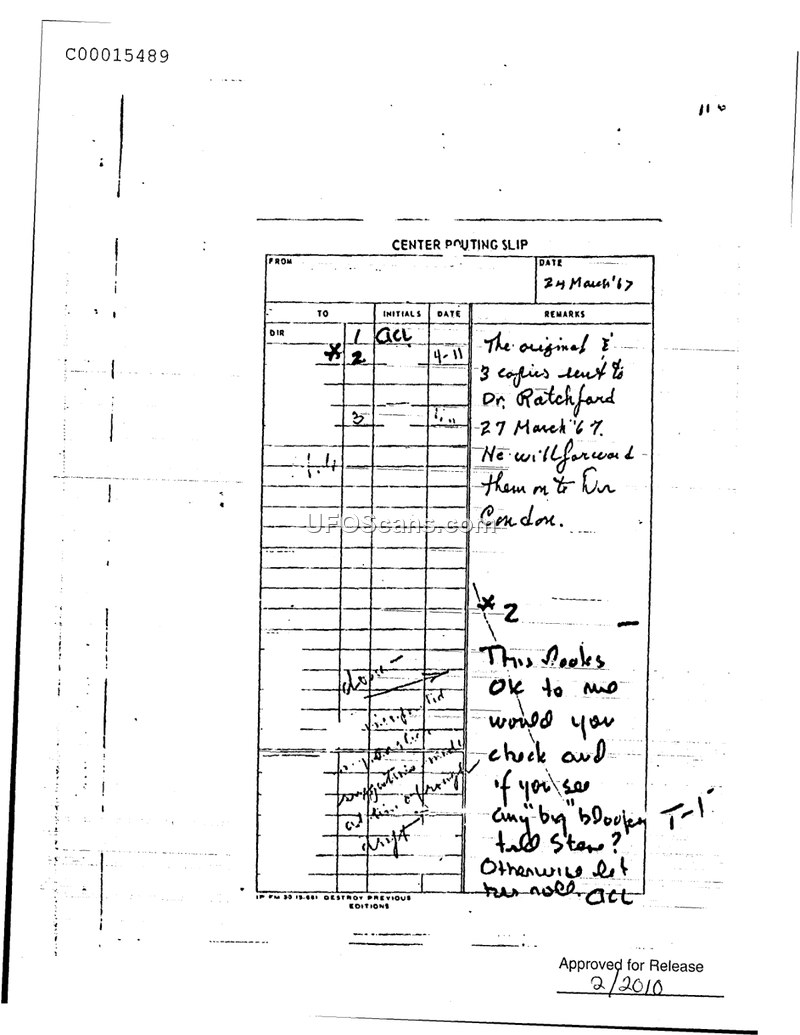 C00015489
CENTER ROUTING SLIP
FROM
DATE
24 March '67
TO
INITIALS
DATE
REMARKS
DIR
1
acl
* 2
4-11
3
1.4
The original &
3 copies sent to
Dr. Ratchford
27 March '67.
He will forward
them on to Dr
Condon.
UFOScans.com
* 2
This looks
OK to me
would you
check and
if you see
any "big" blooper
tell Steve?
Otherwise let
her roll. acl
T-1
done —
suggestions made
at time of rough
draft
IP FM 30 (5-66) DESTROY PREVIOUS
EDITIONS
Approved for Release
2/2010